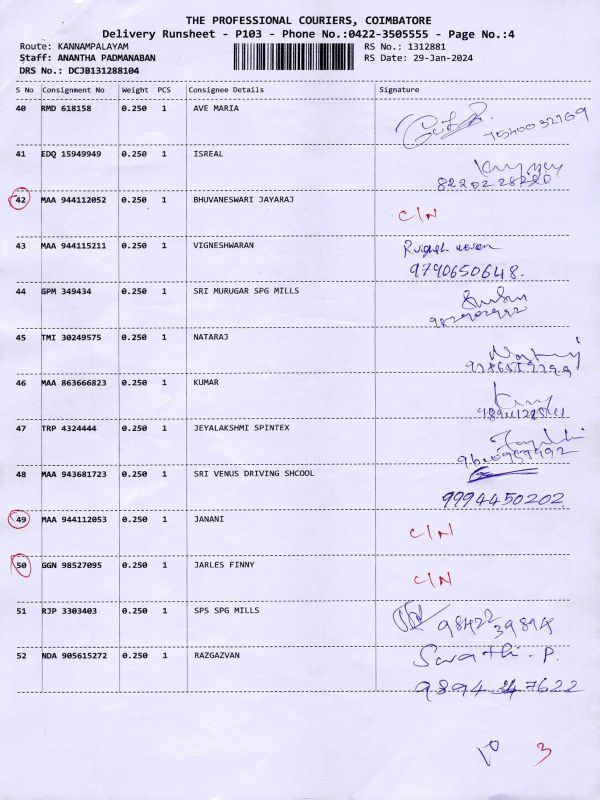 THE PROFESSIONAL COURIERS, COIMBATORE
Delivery Runsheet - P103 - Phone No.:0422-3505555 - Page No.:4
Route: KANNAMPALAYAM RS No.: 1312881
Staff: ANANTHA PADMANABAN RS Date: 29-Jan-2024
DRS No.: DCJB131288104
S No Consignment No Weight PCS Consignee Details Signature
40 RMD 618158 0.250 1 AVE MARIA
41 EDQ 15949949 0.250 1 ISREAL
42 MAA 944112052 0.250 1 BHUVANESWARI JAYARAJ C/N
43 MAA 944115211 0.250 1 VIGNESHWARAN
9790650648.
44 GPM 349434 0.250 1 SRI MURUGAR SPG MILLS
45 TMI 30249575 0.250 1 NATARAJ
46 MAA 863666823 0.250 1 KUMAR
47 TRP 4324444 0.250 1 JEYALAKSHMI SPINTEX
48 MAA 943681723 0.250 1 SRI VENUS DRIVING SHCOOL
9994450202
49 MAA 944112053 0.250 1 JANANI C/N
50 GGN 98527095 0.250 1 JARLES FINNY C/N
51 RJP 3303403 0.250 1 SPS SPG MILLS 98422
39894
52 NDA 905615272 0.250 1 RAZGAZVAN Swathi. P.
10 3